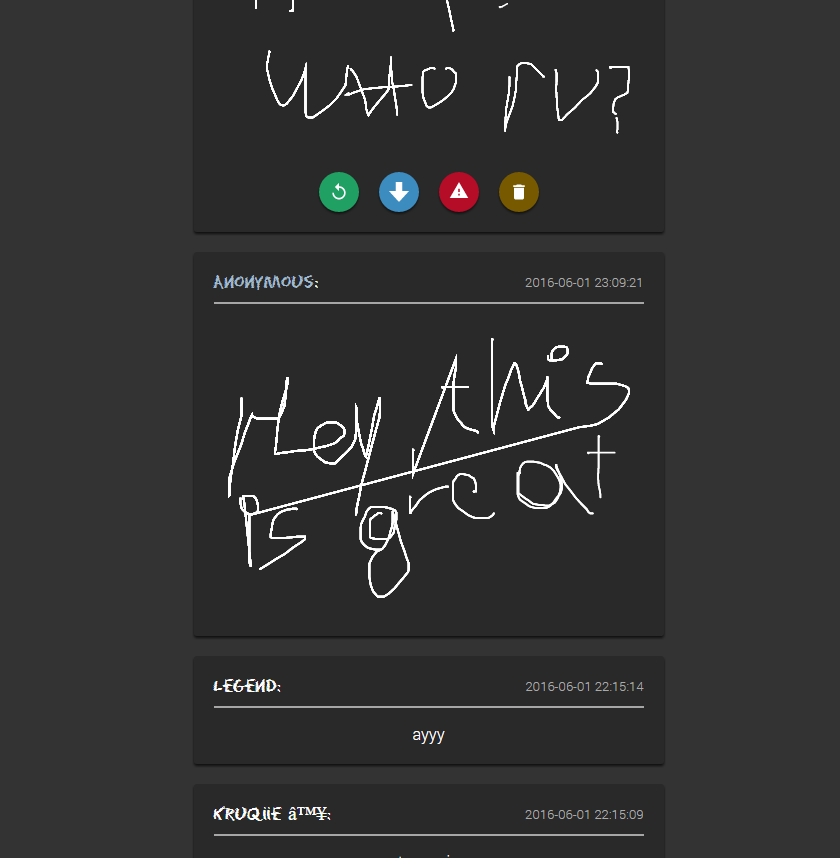 ANONYMOUS:
2016-06-01 23:09:21
Hey, this
is great
LEGEND:
2016-06-01 22:15:14
ayyy
KRUQiiE â™¥:
2016-06-01 22:15:09